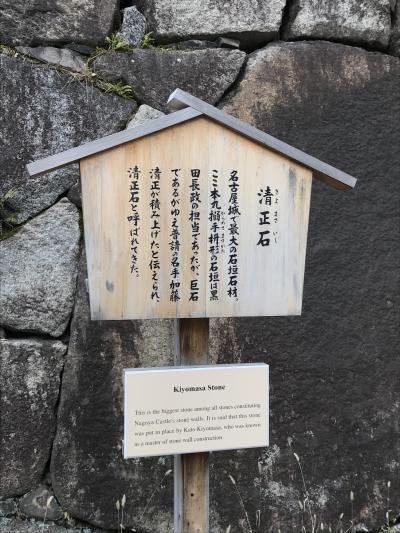 清正石
きよ まさ いし
名古屋城で最大の石垣石材。
ここ本丸搦手枡形の石垣は黒
からめて ますがた
田長政の担当であったが、巨石
であるがゆえ普請の名手加藤
清正が積み上げたと伝えられ、
清正石と呼ばれてきた。
Kiyomasa Stone
This is the biggest stone among all stones constituting
Nagoya Castle's stone walls. It is said that this stone
was put in place by Kato Kiyomasa, who was known
as a master of stone wall construction